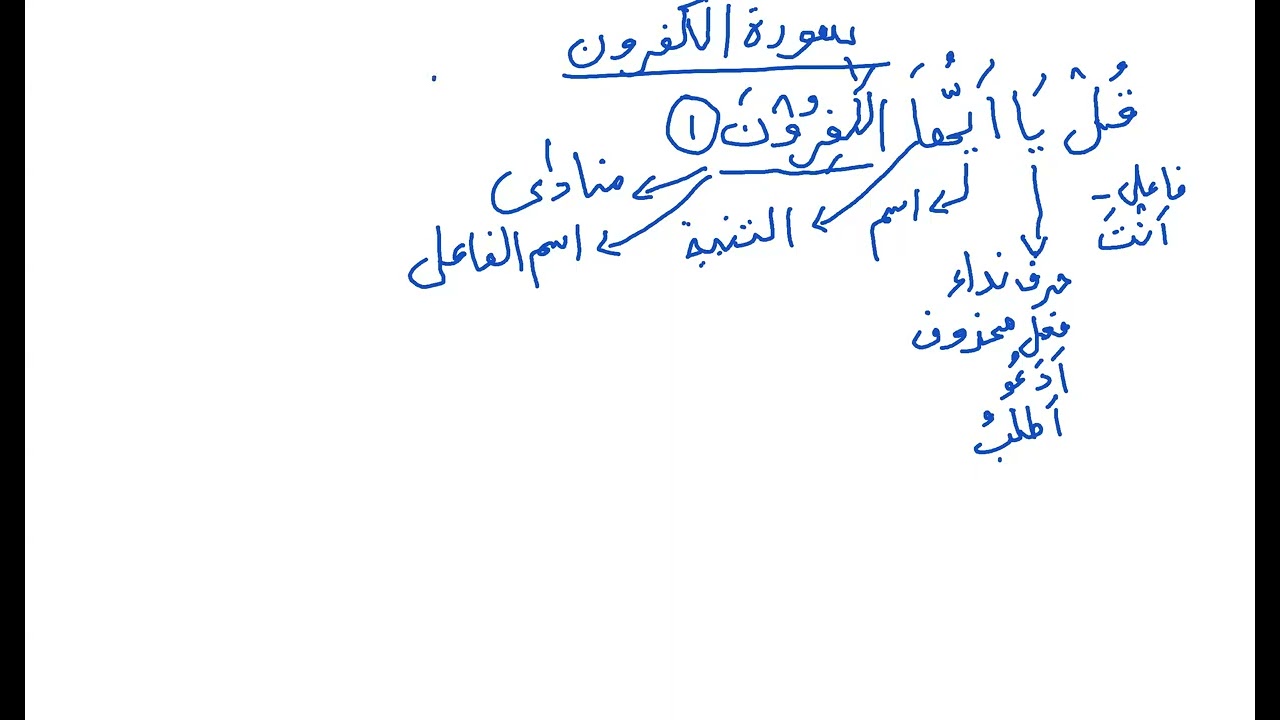 سورة الكفرون
قُلْ يَا اَيُّهَا الْكٰفِرُوْنَ ١
فاعل - اَنْتَ
حرف نداء
فعل محذوف
اَدَعُو
اَطلبُ
اسم
التنبية
منادٰى
اسم الفاعل